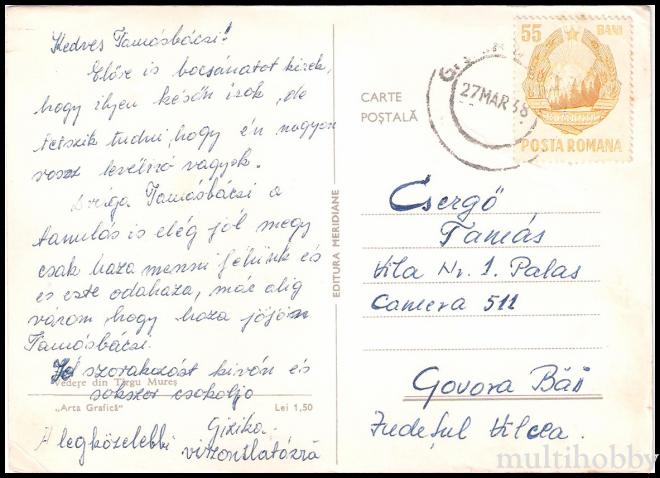 Kedves Tamásbácsi!
Előre is bocsánatot kérek,
hogy ilyen későn írok, de
tetszik tudni, hogy én nagyon
rossz levélíró vagyok.
Drága Tamásbácsi a
tanulás is elég jól megy
csak haza menni félünk és
és este odahaza, már alig
várom hogy haza jöjön
Tamásbácsi.
Jó szorakozást kíván és
sokszor csokoljo
Gizike.
A legközelebbi
viszontlatásra
Vedere din Tîrgu Mureș
„Arta Grafică”
Lei 1,50
EDITURA MERIDIANE
CARTE
POȘTALĂ
27 MAR 68
55 BANI
POSTA ROMANA
Csergő
Tamás
Vila Nr. 1. Palas
Camera 511
Govora Băi
Județul Vîlcea.
multihobby